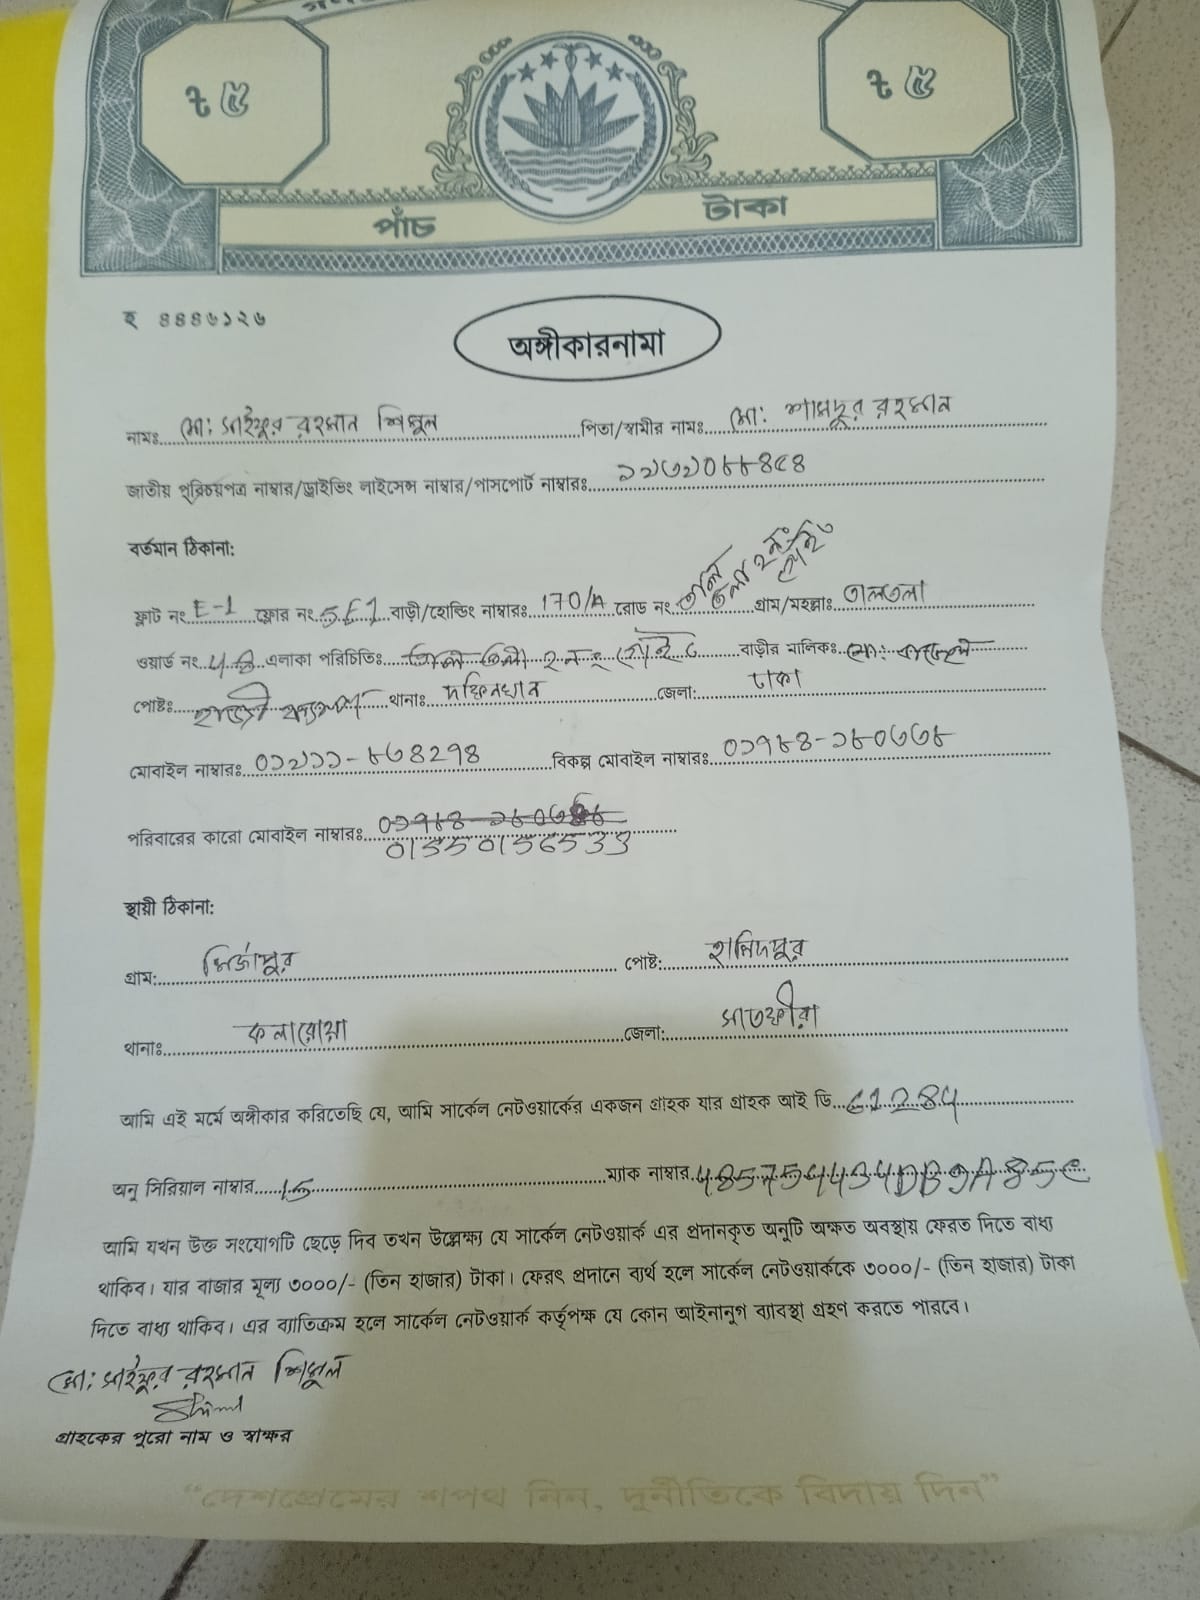 ৳ ৫
৳ ৫
পাঁচ টাকা
হ ৪৪৪৬১২৬
অঙ্গীকারনামা
নামঃ মো: সাইফুর রহমান শিমুল পিতা/স্বামীর নামঃ মো: শামছুর রহমান
জাতীয় পরিচয়পত্র নাম্বার/ড্রাইভিং লাইসেন্স নাম্বার/পাসপোর্ট নাম্বারঃ
বর্তমান ঠিকানা:
ফ্লাট নং E-1 ফ্লোর নং 5E1 বাড়ী/হোল্ডিং নাম্বারঃ 170/A রোড নং তাল তলা ২ নং গেইট গ্রাম/মহল্লাঃ তালতলা
ওয়ার্ড নং এলাকা পরিচিতিঃ তাল তলা ২ নং গেইট বাড়ীর মালিকঃ মো:
পোষ্টঃ হাজী ক্যাম্প থানাঃ দক্ষিনখান জেলা: ঢাকা
মোবাইল নাম্বারঃ ০১২১১-৮৬৪২৭৪ বিকল্প মোবাইল নাম্বারঃ ০১৭৮৪-১৮০৬৬৮
পরিবারের কারো মোবাইল নাম্বারঃ
স্থায়ী ঠিকানা:
গ্রাম: মির্জাপুর পোষ্ট: হামিদপুর
থানাঃ কলারোয়া জেলা: সাতক্ষীরা
আমি এই মর্মে অঙ্গীকার করিতেছি যে, আমি সার্কেল নেটওয়ার্কের একজন গ্রাহক যার গ্রাহক আই ডি
অনু সিরিয়াল নাম্বার 15 ম্যাক নাম্বার
আমি যখন উক্ত সংযোগটি ছেড়ে দিব তখন উল্লেক্ষ্য যে সার্কেল নেটওয়ার্ক এর প্রদানকৃত অনুটি অক্ষত অবস্থায় ফেরত দিতে বাধ্য
থাকিব। যার বাজার মূল্য ৩০০০/- (তিন হাজার) টাকা। ফেরৎ প্রদানে ব্যর্থ হলে সার্কেল নেটওয়ার্ককে ৩০০০/- (তিন হাজার) টাকা
দিতে বাধ্য থাকিব। এর ব্যাতিক্রম হলে সার্কেল নেটওয়ার্ক কর্তৃপক্ষ যে কোন আইনানুগ ব্যাবস্থা গ্রহণ করতে পারবে।
মো: সাইফুর রহমান শিমুল
গ্রাহকের পুরো নাম ও স্বাক্ষর
“দেশপ্রেমের শপথ নিন, দুর্নীতিকে বিদায় দিন”